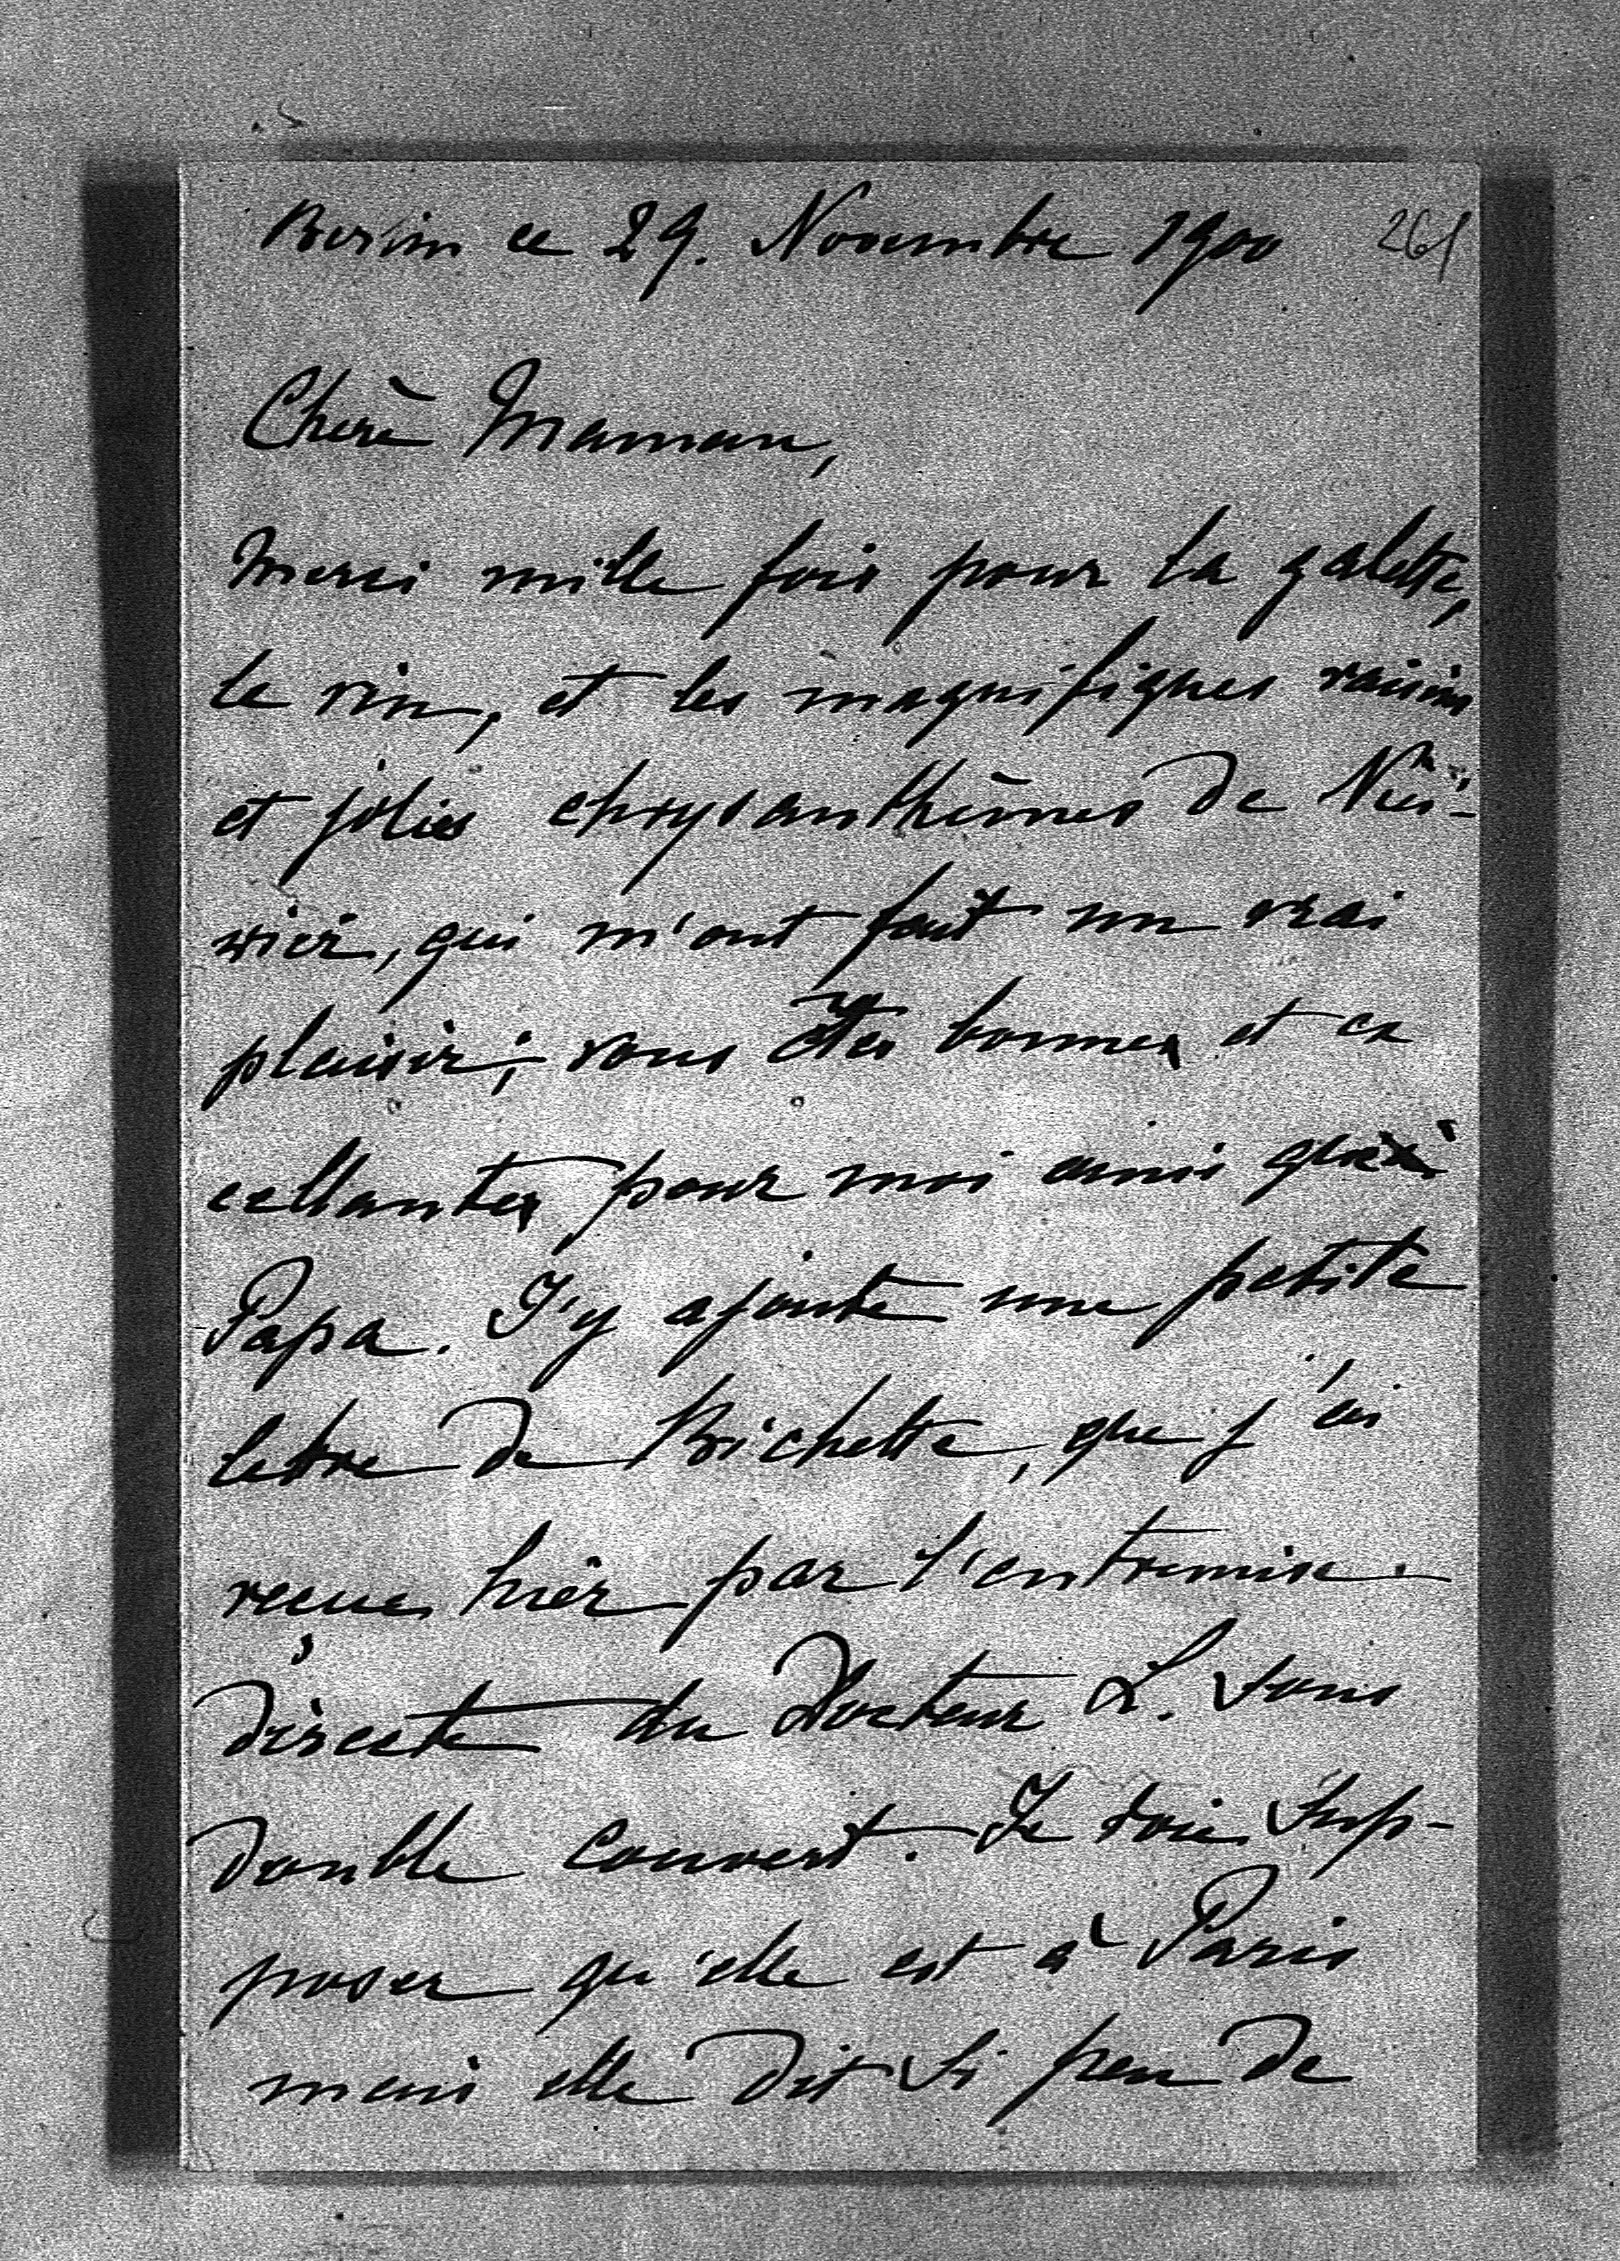 ce 29. Novembre 1900 261
Chère Maman,
Merci mille fois pour la galette,
le vin, et les magnifiques raisins
et jolies chrysanthèmes de
qui m'ont fait un vrai
plaisir; vous êtes bonnes et ex
cellantes pour moi ainsi que
Papa. J'y ajoute une petite
lettre de Bichette, que j'ai
reçue hier par l'entremise
directe du Docteur L. sous
double couvert. Je dois sup-
poser qu'elle est à Paris
mais elle dit si peu de